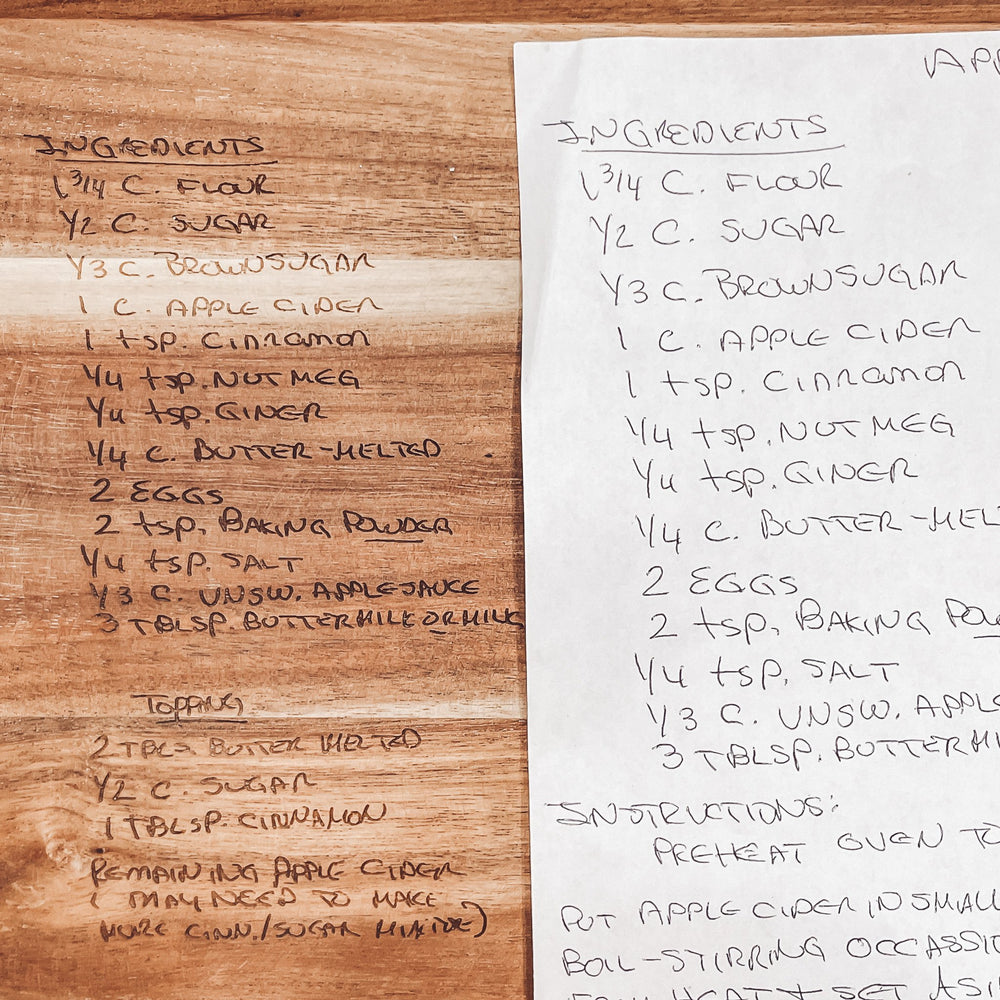 INGREDIENTS
1 3/4 C. FLOUR
1/2 C. SUGAR
1/3 C. BROWN SUGAR
1 C. APPLE CIDER
1 tsp. Cinnamon
1/4 tsp. NUTMEG
1/4 tsp. GINER
1/4 C. BUTTER-MELTED
2 EGGS
2 tsp. BAKING POWDER
1/4 tsp. SALT
1/3 C. UNSW. APPLESAUCE
3 TBLSP. BUTTERMILK OR MILK
TOPPING
2 TBLS. BUTTER MELTED
1/2 C. SUGAR
1 TBLSP. CINNAMON
REMAINING APPLE CIDER
( MAY NEED TO MAKE
MORE CINN./SUGAR MIXTURE)
APP
INGREDIENTS
1 3/4 C. FLOUR
1/2 C. SUGAR
1/3 C. BROWN SUGAR
1 C. APPLE CIDER
1 tsp. Cinnamon
1/4 tsp. NUTMEG
1/4 tsp. GINER
1/4 C. BUTTER-MEL
2 EGGS
2 tsp. BAKING POW
1/4 tsp. SALT
1/3 C. UNSW. APPLE
3 TBLSP. BUTTERMI
INSTRUCTIONS:
PREHEAT OVEN TO
PUT APPLE CIDER IN SMALL
BOIL-STIRRING OCCASSIO
FROM HEAT + SET ASI